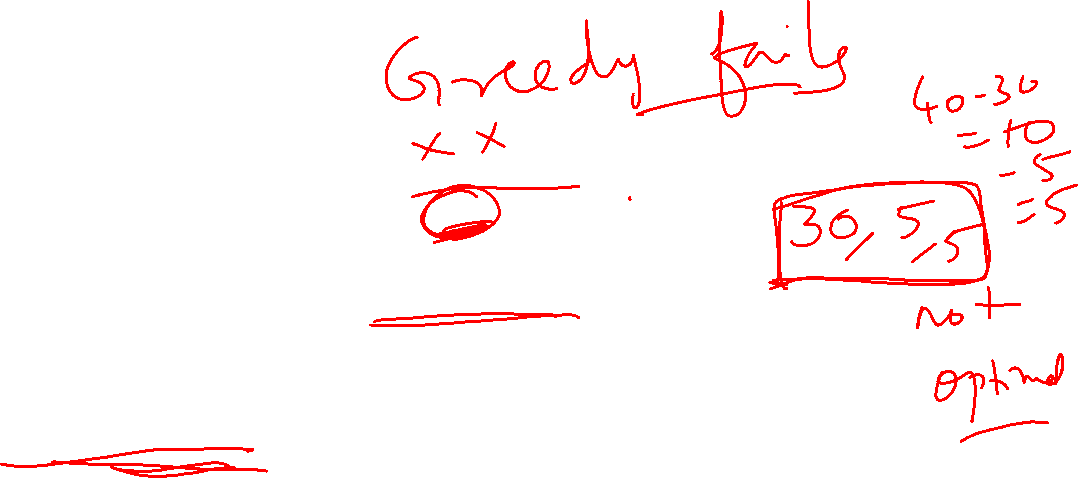 Greedy fails
x x
40-30
= 10
- 5
= 5
30, 5, 5
not
optimal